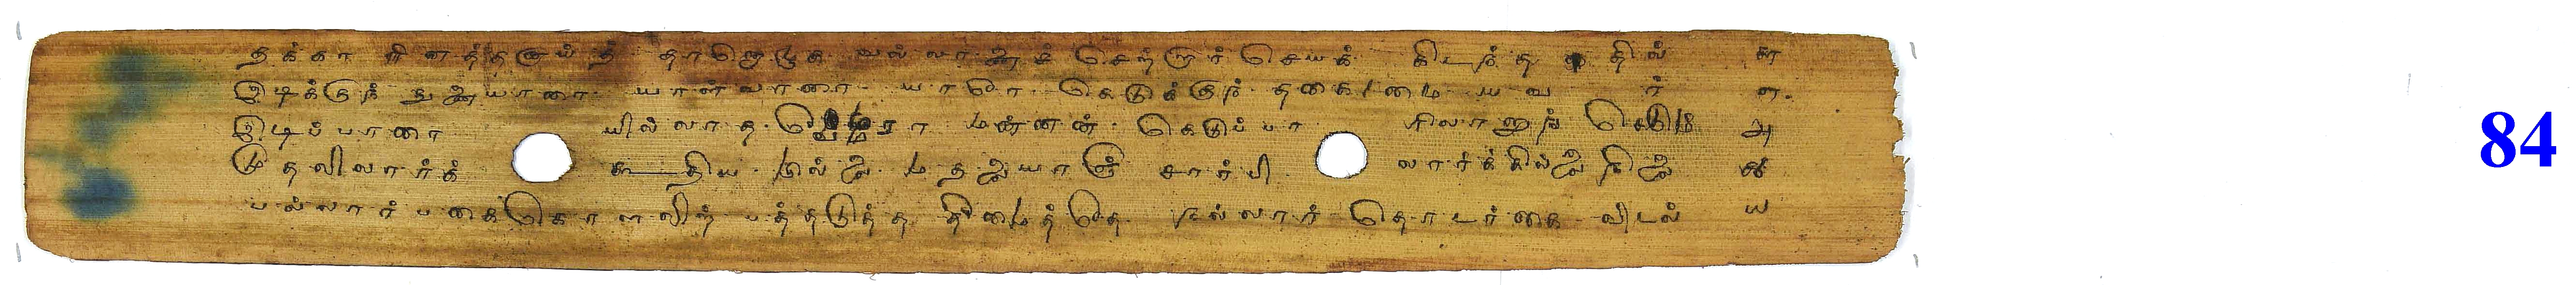 தக்கா ரினத்தனாய்த் தானொழுக வல்லானைச் செற்றார் செயக் கிடந்த தில் ௬
இடிக்குந் துணையாரை யாள்வாரை யாரே கெடுக்குந் தகைமை யவர் ௭
இடிப்பாரை யில்லாத வேமரா மன்னன் கெடுப்பா ரிலானுங் கெடும் ௮
முதலிலார்க் கூதிய மில்லை மதலையாஞ் சார்பி லார்க்கில்லை நிலை ௯
பல்லார் பகைகொளலிற் பத்தடுத்த தீமைத்தே நல்லார் தொடர்கை விடல் ௰
84